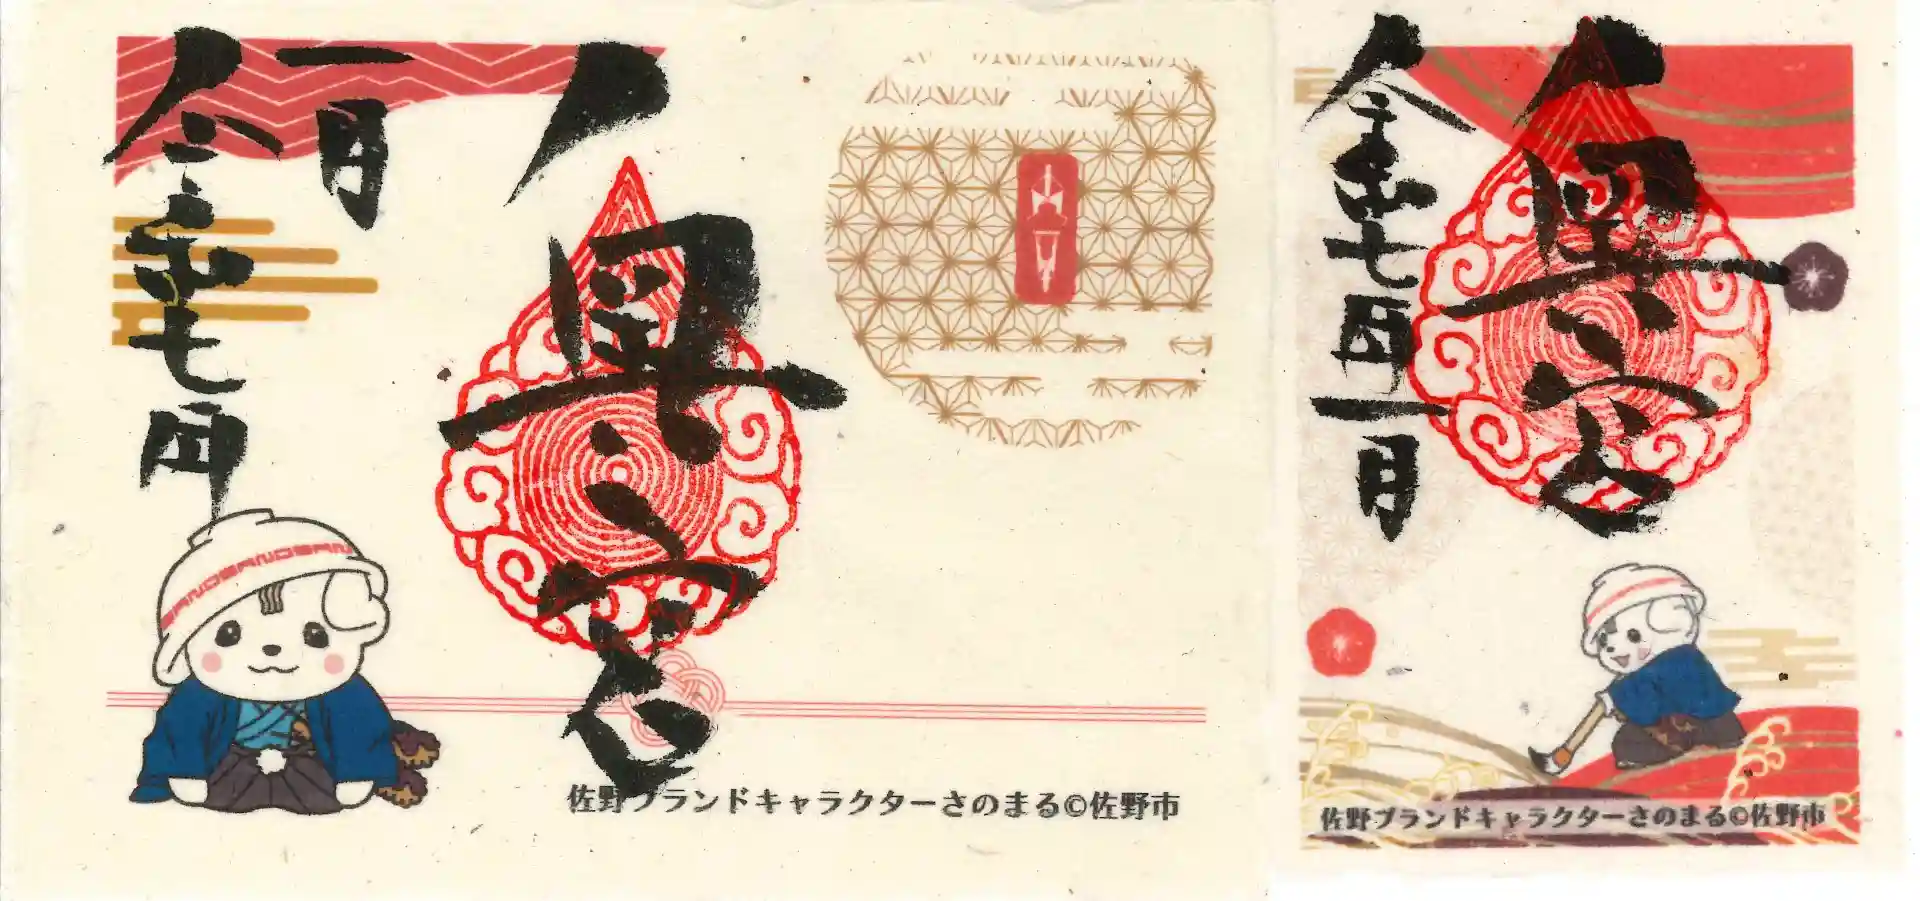 奥宮
令和七年
一月
佐野ブランドキャラクターさのまる©佐野市
奥宮
令和七年一月
佐野ブランドキャラクターさのまる©佐野市